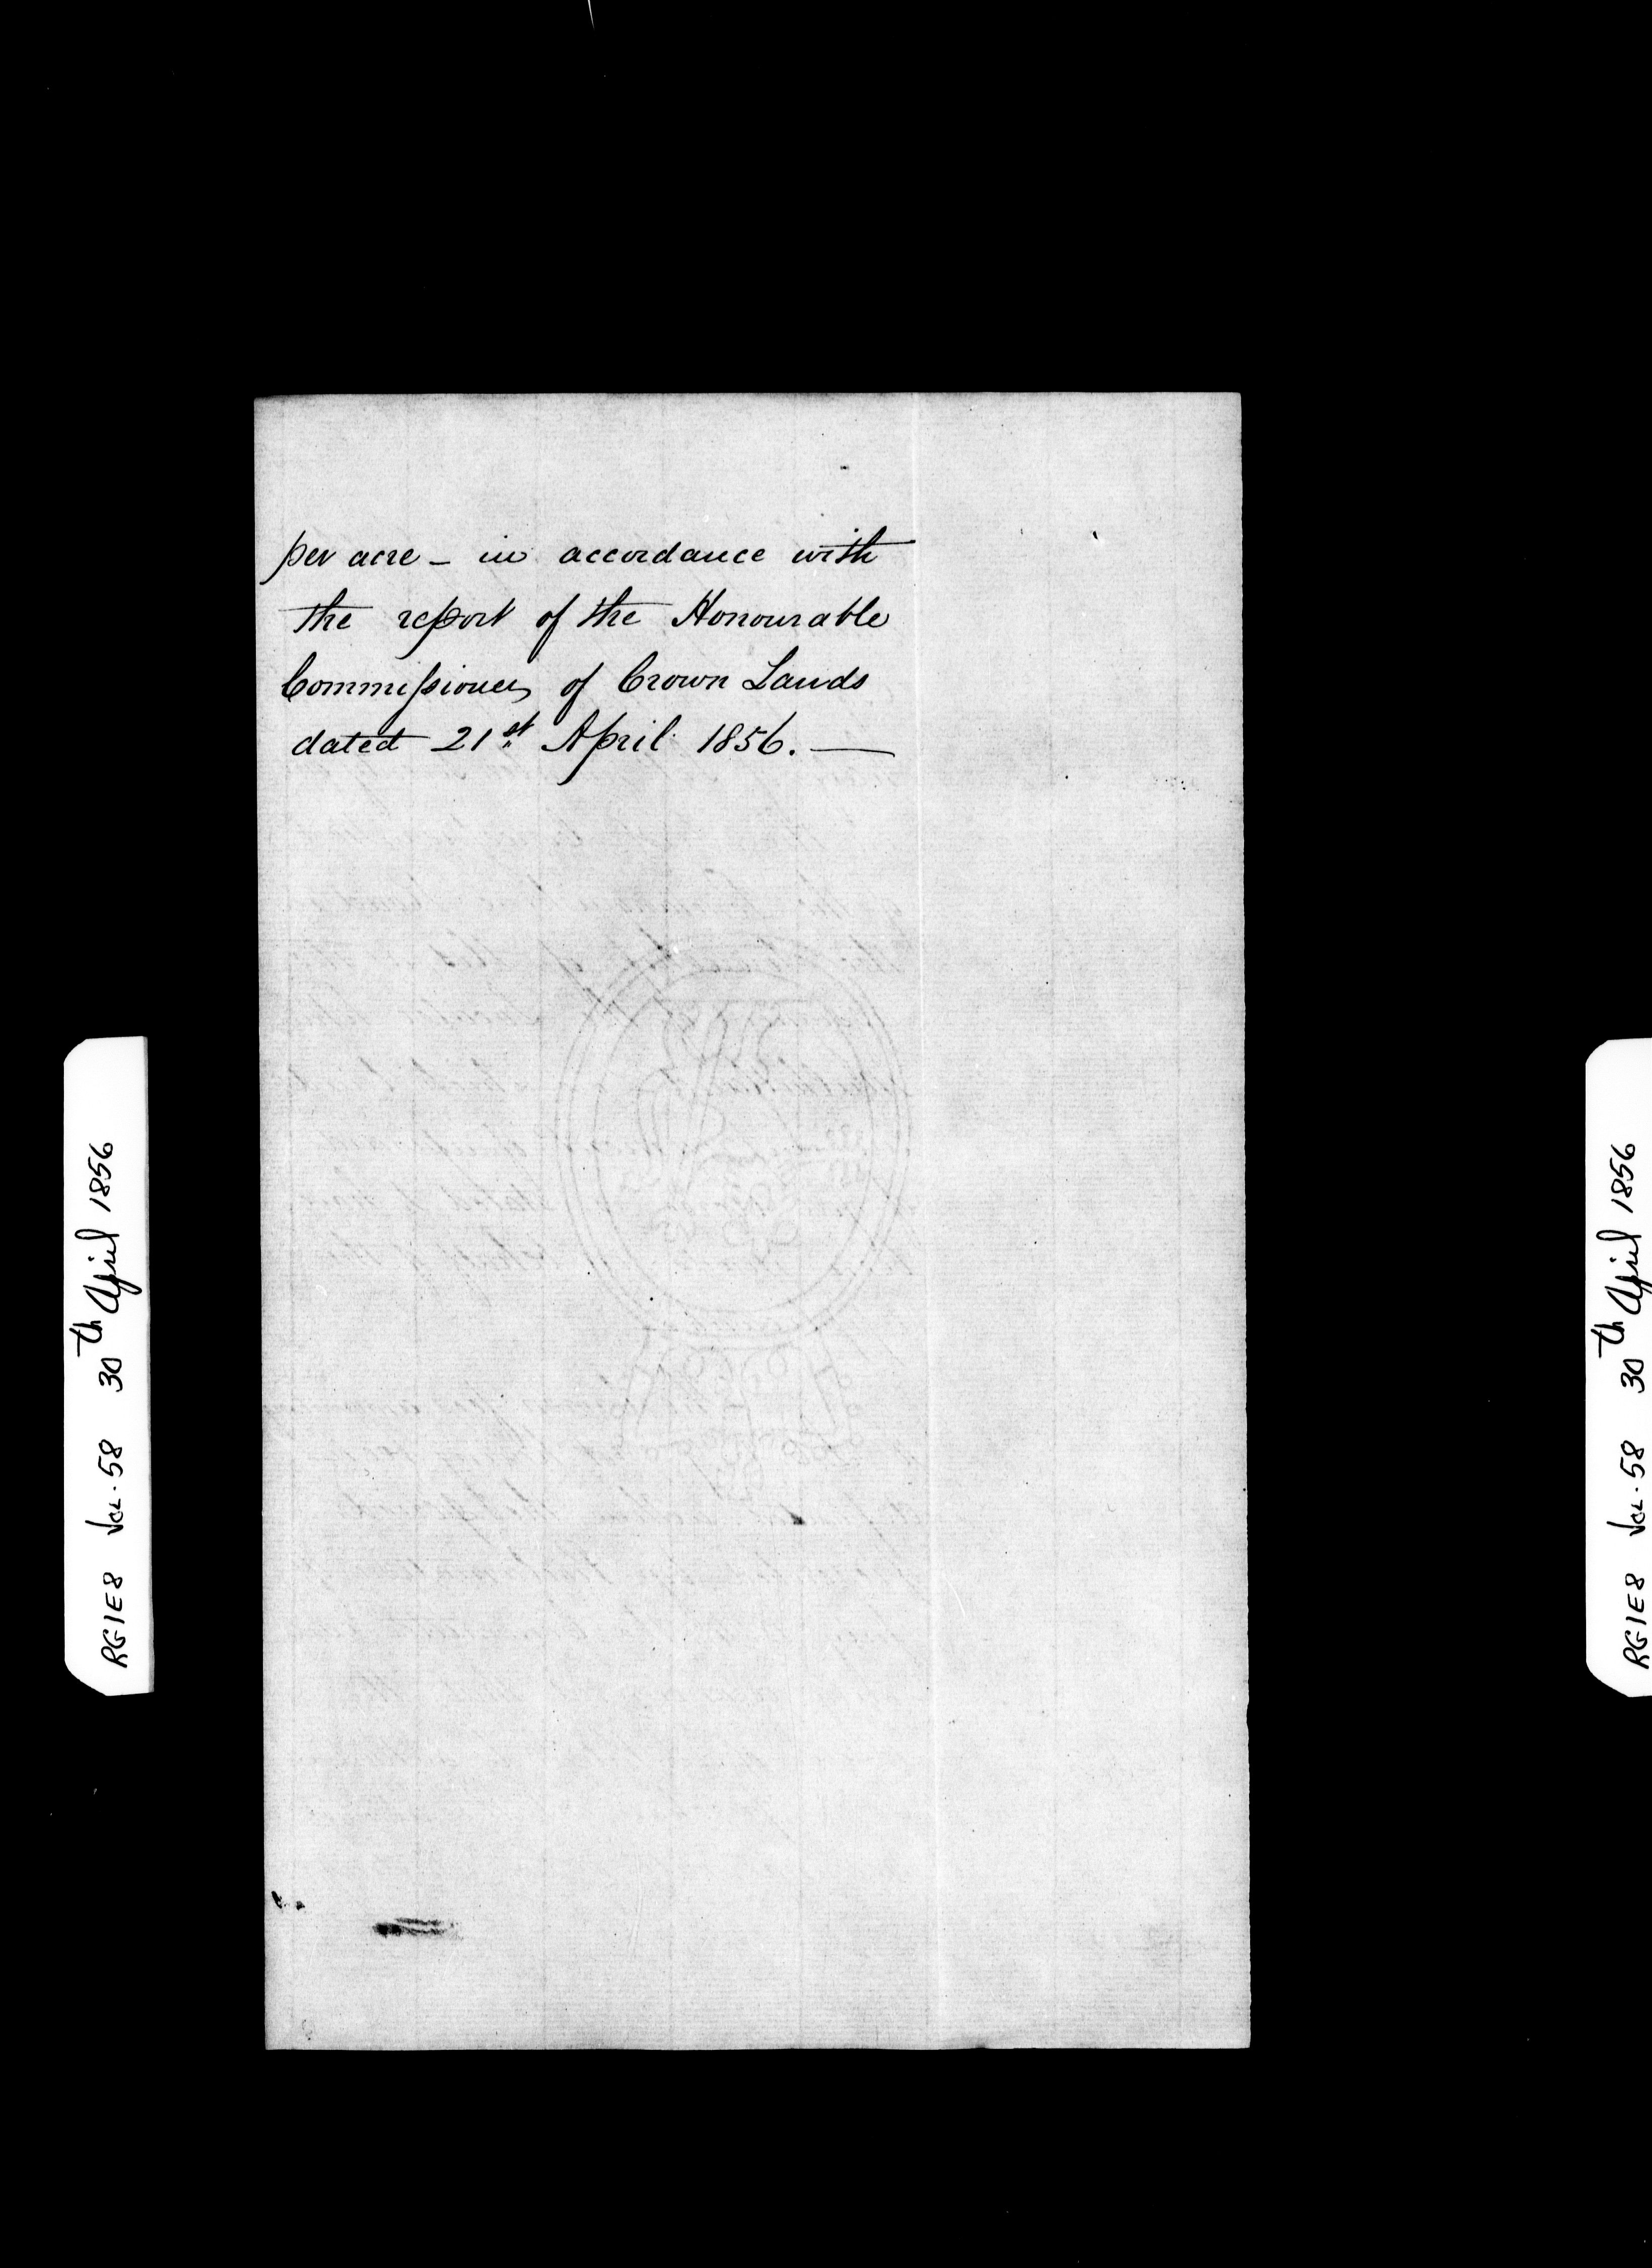 per acre – in accordance with
the report of the Honourable
Commissioner of Crown Lands
dated 21st April 1856. —
RG1E8 Vol. 58 30th April 1856
RG1E8 Vol. 58 30th April 1856